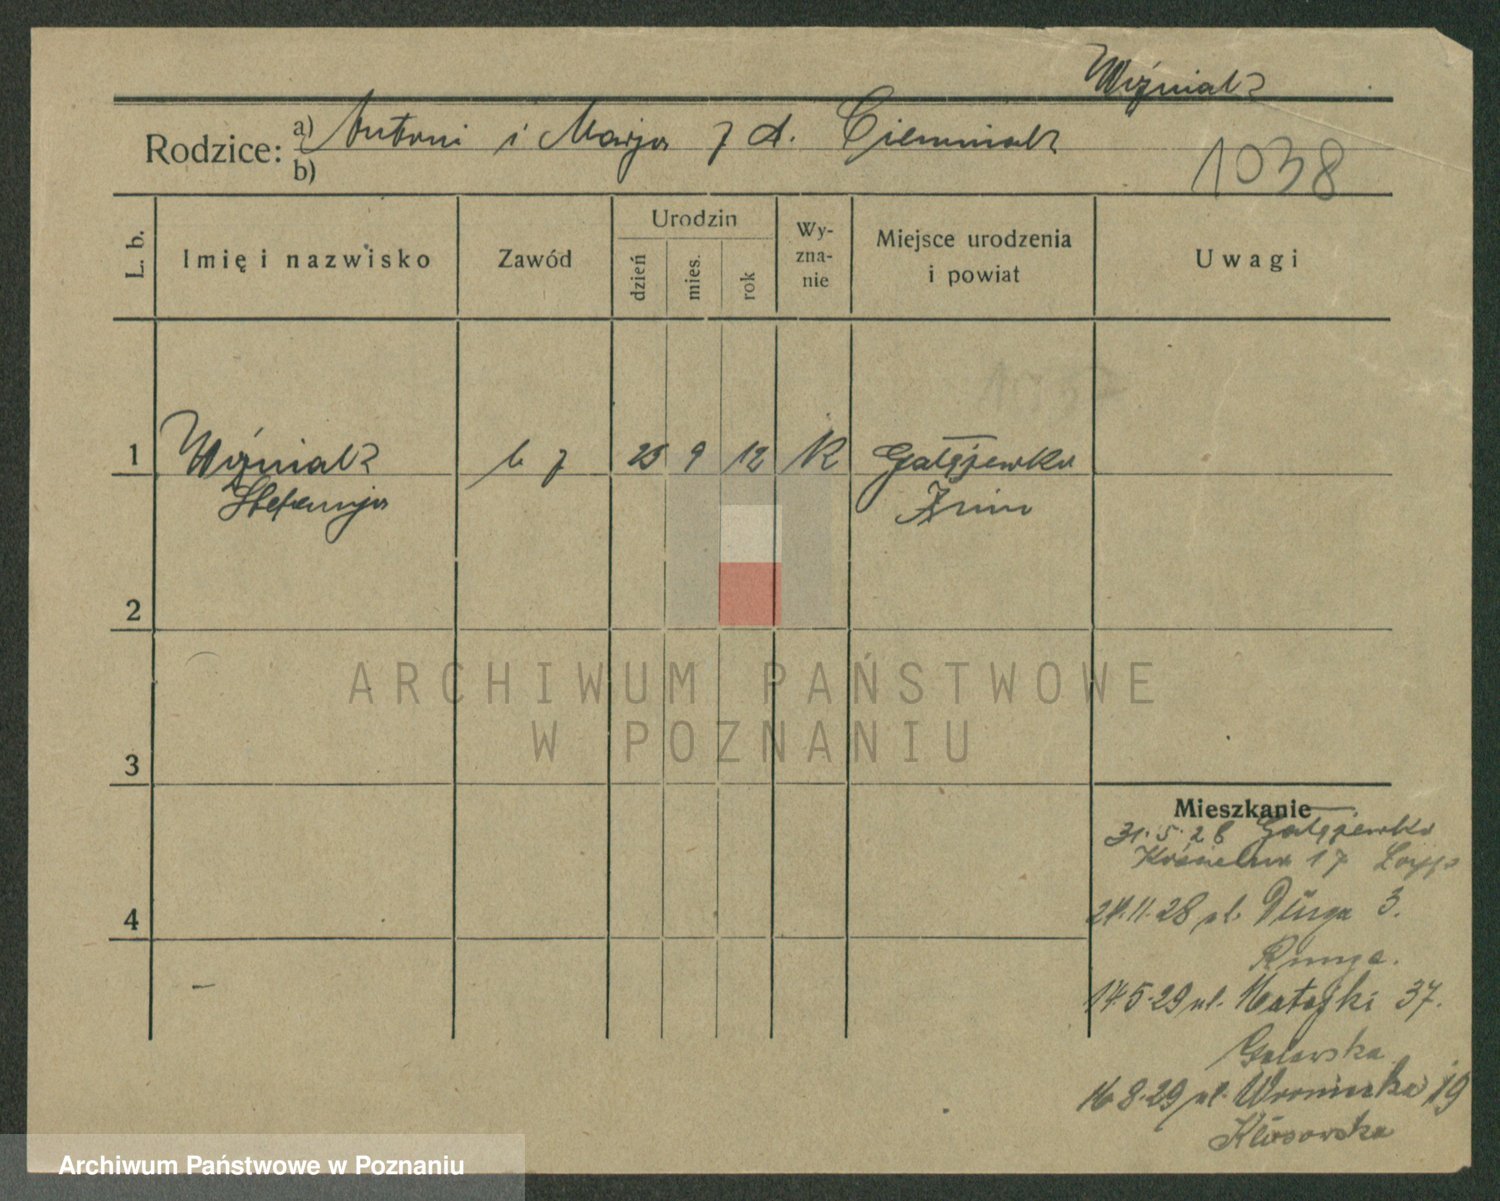 Woźniak
Rodzice: a) Antoni i Marja z d. Ciemniak
b)
1038
L. b.
Imię i nazwisko
Zawód
Urodzin
dzień
mies.
rok
Wy-
zna-
nie
Miejsce urodzenia
i powiat
Uwagi
1 Woźniak b z 25 9 12 K Gałężewko
Stefanja Żnin
2
ARCHIWUM PAŃSTWOWE
W POZNANIU
3
Mieszkanie
31.5.28 Gałężewko
17
4
24.11.28 ul. Długa 3.
Runge.
14.5.29 ul. Matejki 37.
16.8.29 ul. Wroniecka 19
Kłosowska
Archiwum Państwowe w Poznaniu